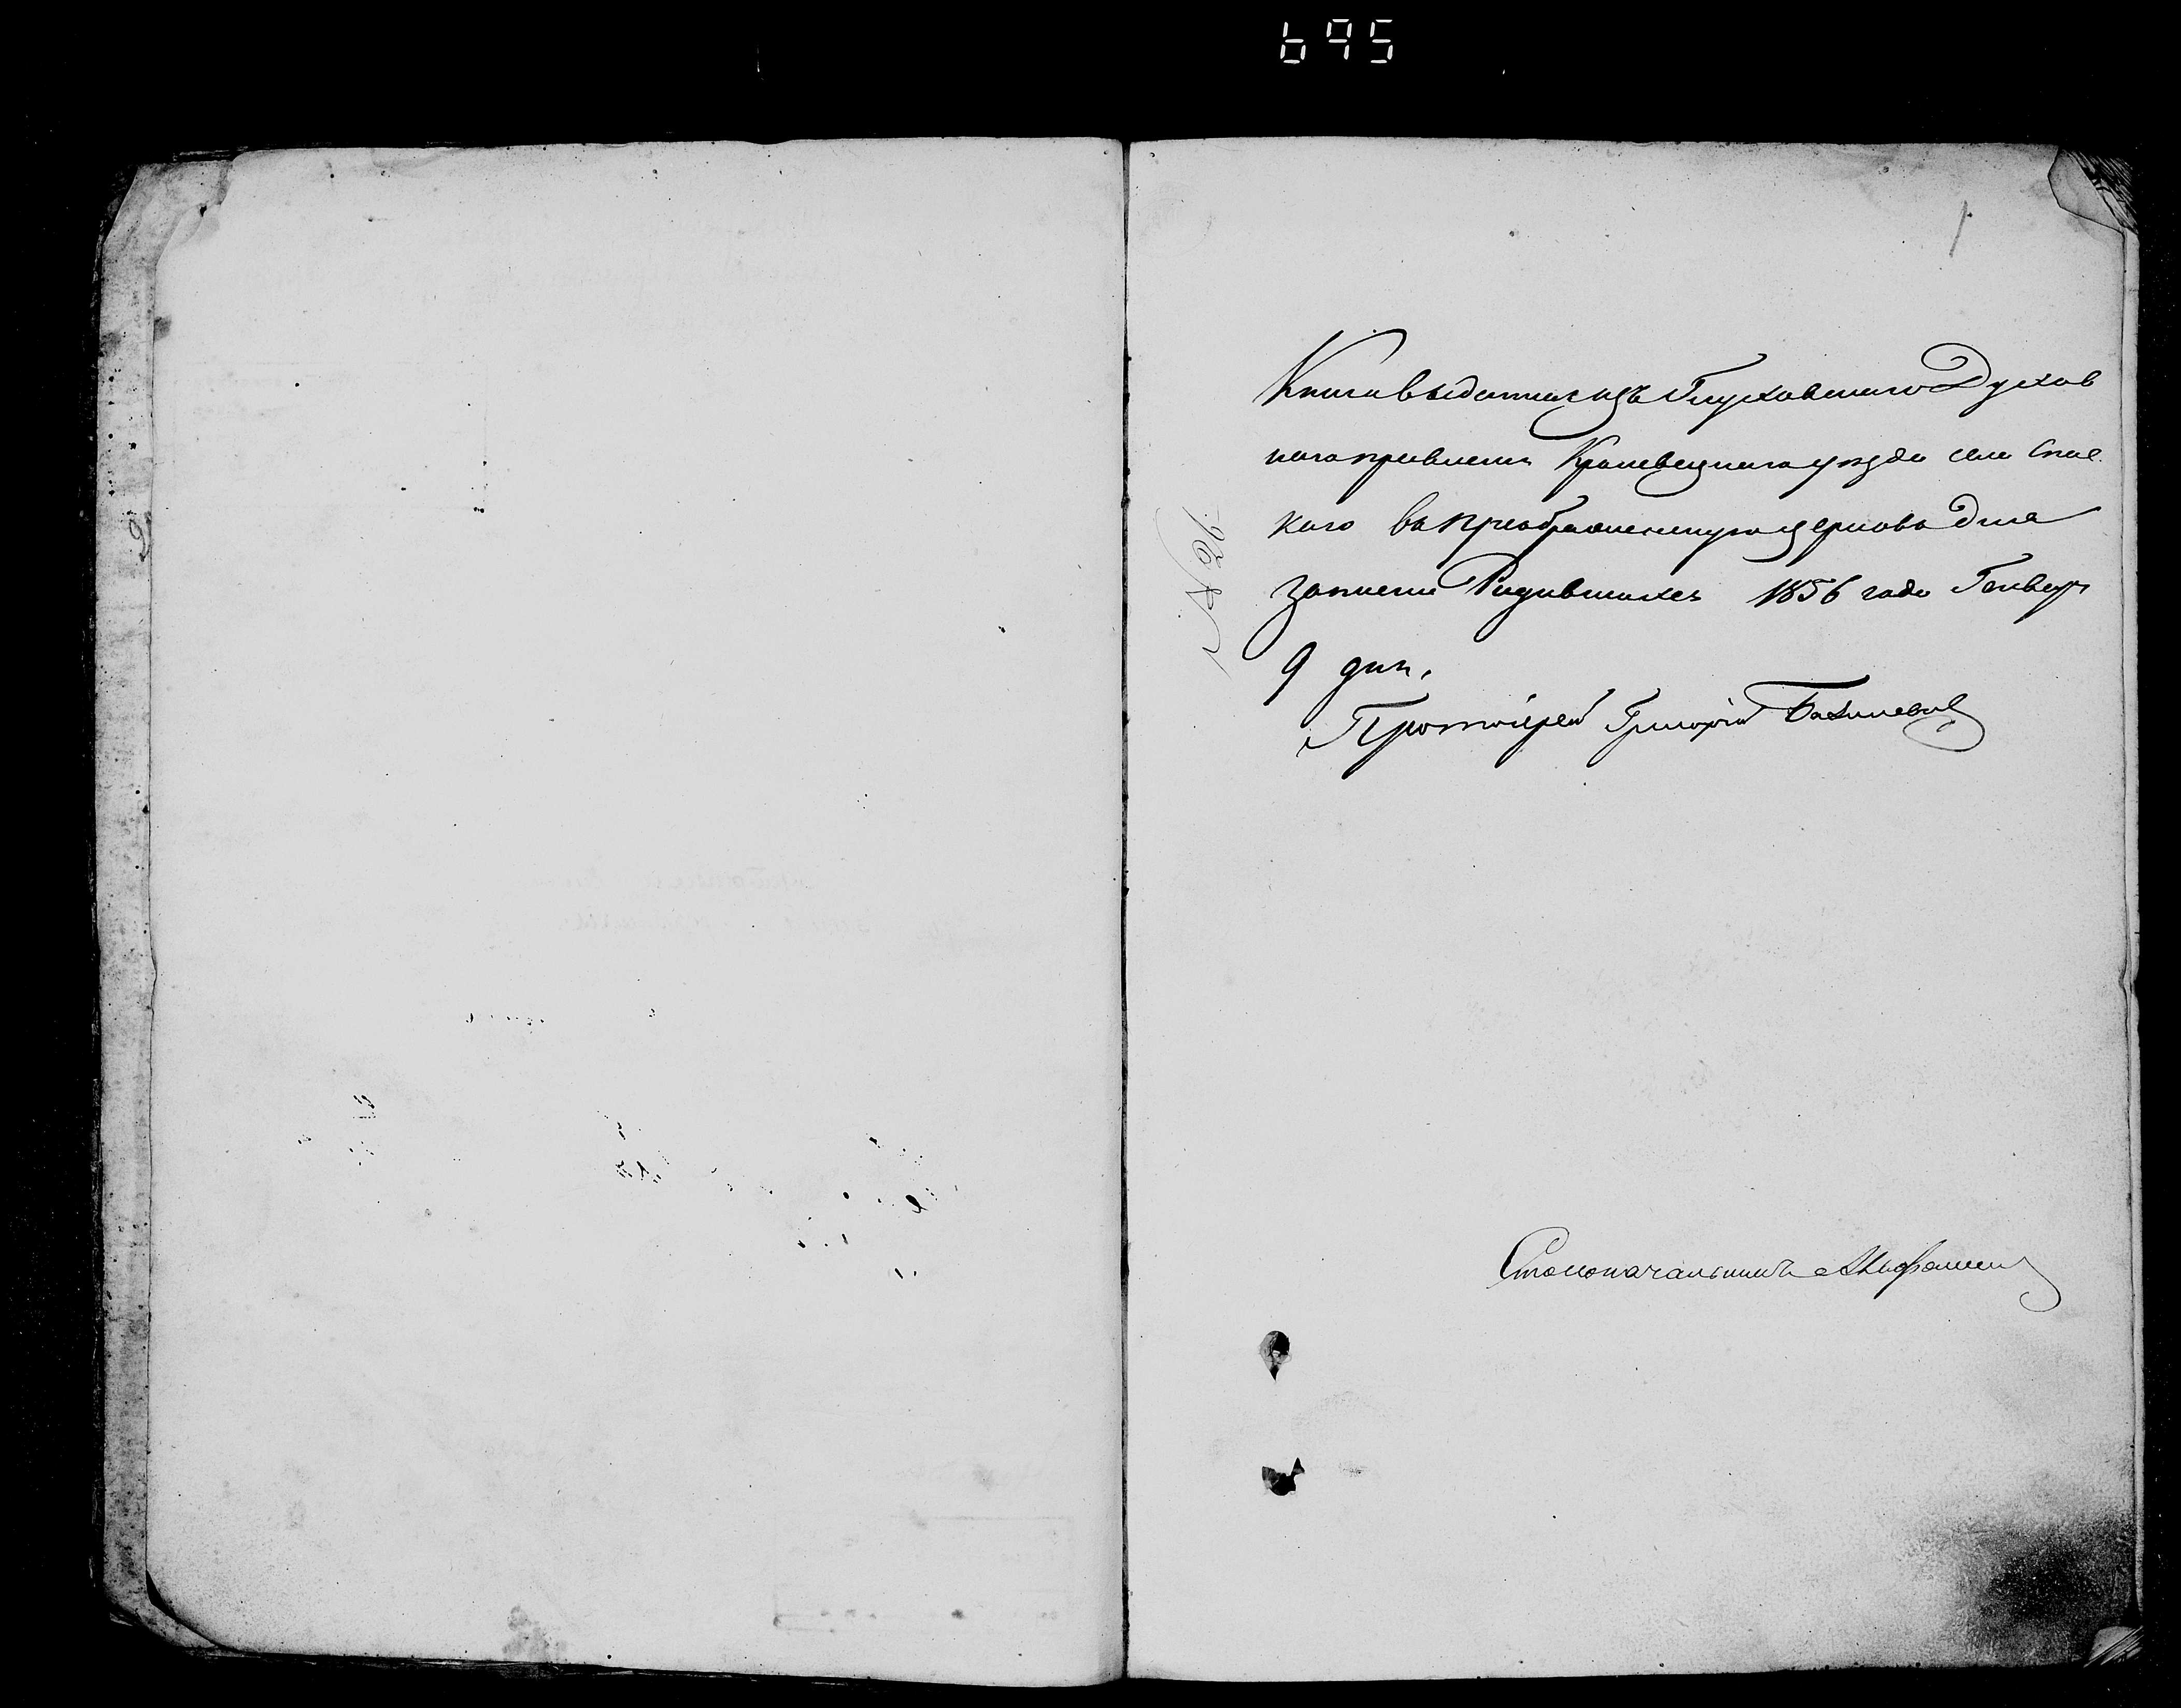 695
1
Книга выданная изъ Глуховскаго Духов
наго правленія Кролевецкаго уѣзда села Спас
каго въ преображенскую церковь для
записи Родившихся 1856 года Генваря
9 дня.
Протоіерей Григорій
№ 26.
Столоначальникъ